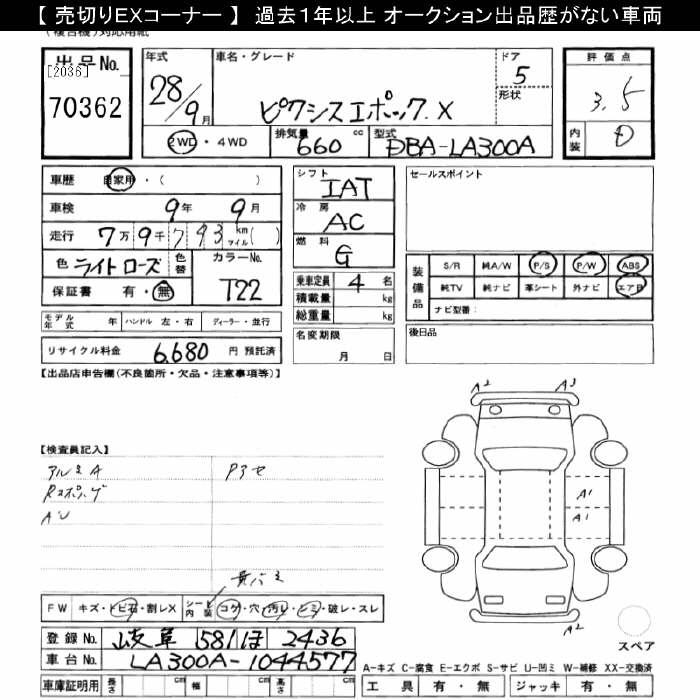 【 売切りEXコーナー 】 過去1年以上 オークション出品歴がない車両
(複合機)対応用紙
出品No.
[2036]
70362
年式
28/9月
車名・グレード
ピクシスエポック X
ドア
5
形状
評価点
3.5
内装
D
2WD・4WD
排気量 660 cc
型式 DBA-LA300A
車歴 自家用・( )
車検 9年 9月
走行 7万9千793 km マイル( )
色 ライトローズ 色替
カラーNo. T22
保証書 有・無
モデル年式 年 ハンドル 左・右 ディーラー・並行
リサイクル料金 6,680 円 預託済
シフト IAT
冷房 AC
燃料 G
乗車定員 4 名
積載量 kg
総重量 kg
名変期限
月 日
セールスポイント
装備品
S/R 純A/W P/S P/W ABS
純TV 純ナビ 革シート 外ナビ エアB
ナビ型番:
後日品
【出品店申告欄(不良箇所・欠品・注意事項等)】
【検査員記入】
Pアセ
A2 A3
A1
A1
A2
スペア
FW キズ・トビ石・割レX
シート内装 コゲ・穴・汚レ・シミ・破レ・スレ
登録No. 岐阜 581 ほ 2436
車台No. LA300A-1044577
車庫証明用 長さ cm 幅 cm 高さ cm
A-キズ C-腐食 E-エクボ S-サビ U-凹ミ W-補修 XX-交換済
工具 有・無 ジャッキ 有・無